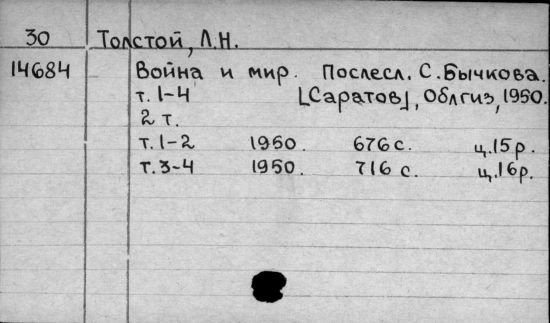 30 Толстой, Л.Н.
14684 Война и мир. Послесл. С. Бычкова.
т. 1-4 [Саратов], Облгиз, 1950.
2 т.
т. 1-2 1950. 676 с. ц. 15 р.
т. 3-4 1950. 716 с. ц. 16 р.